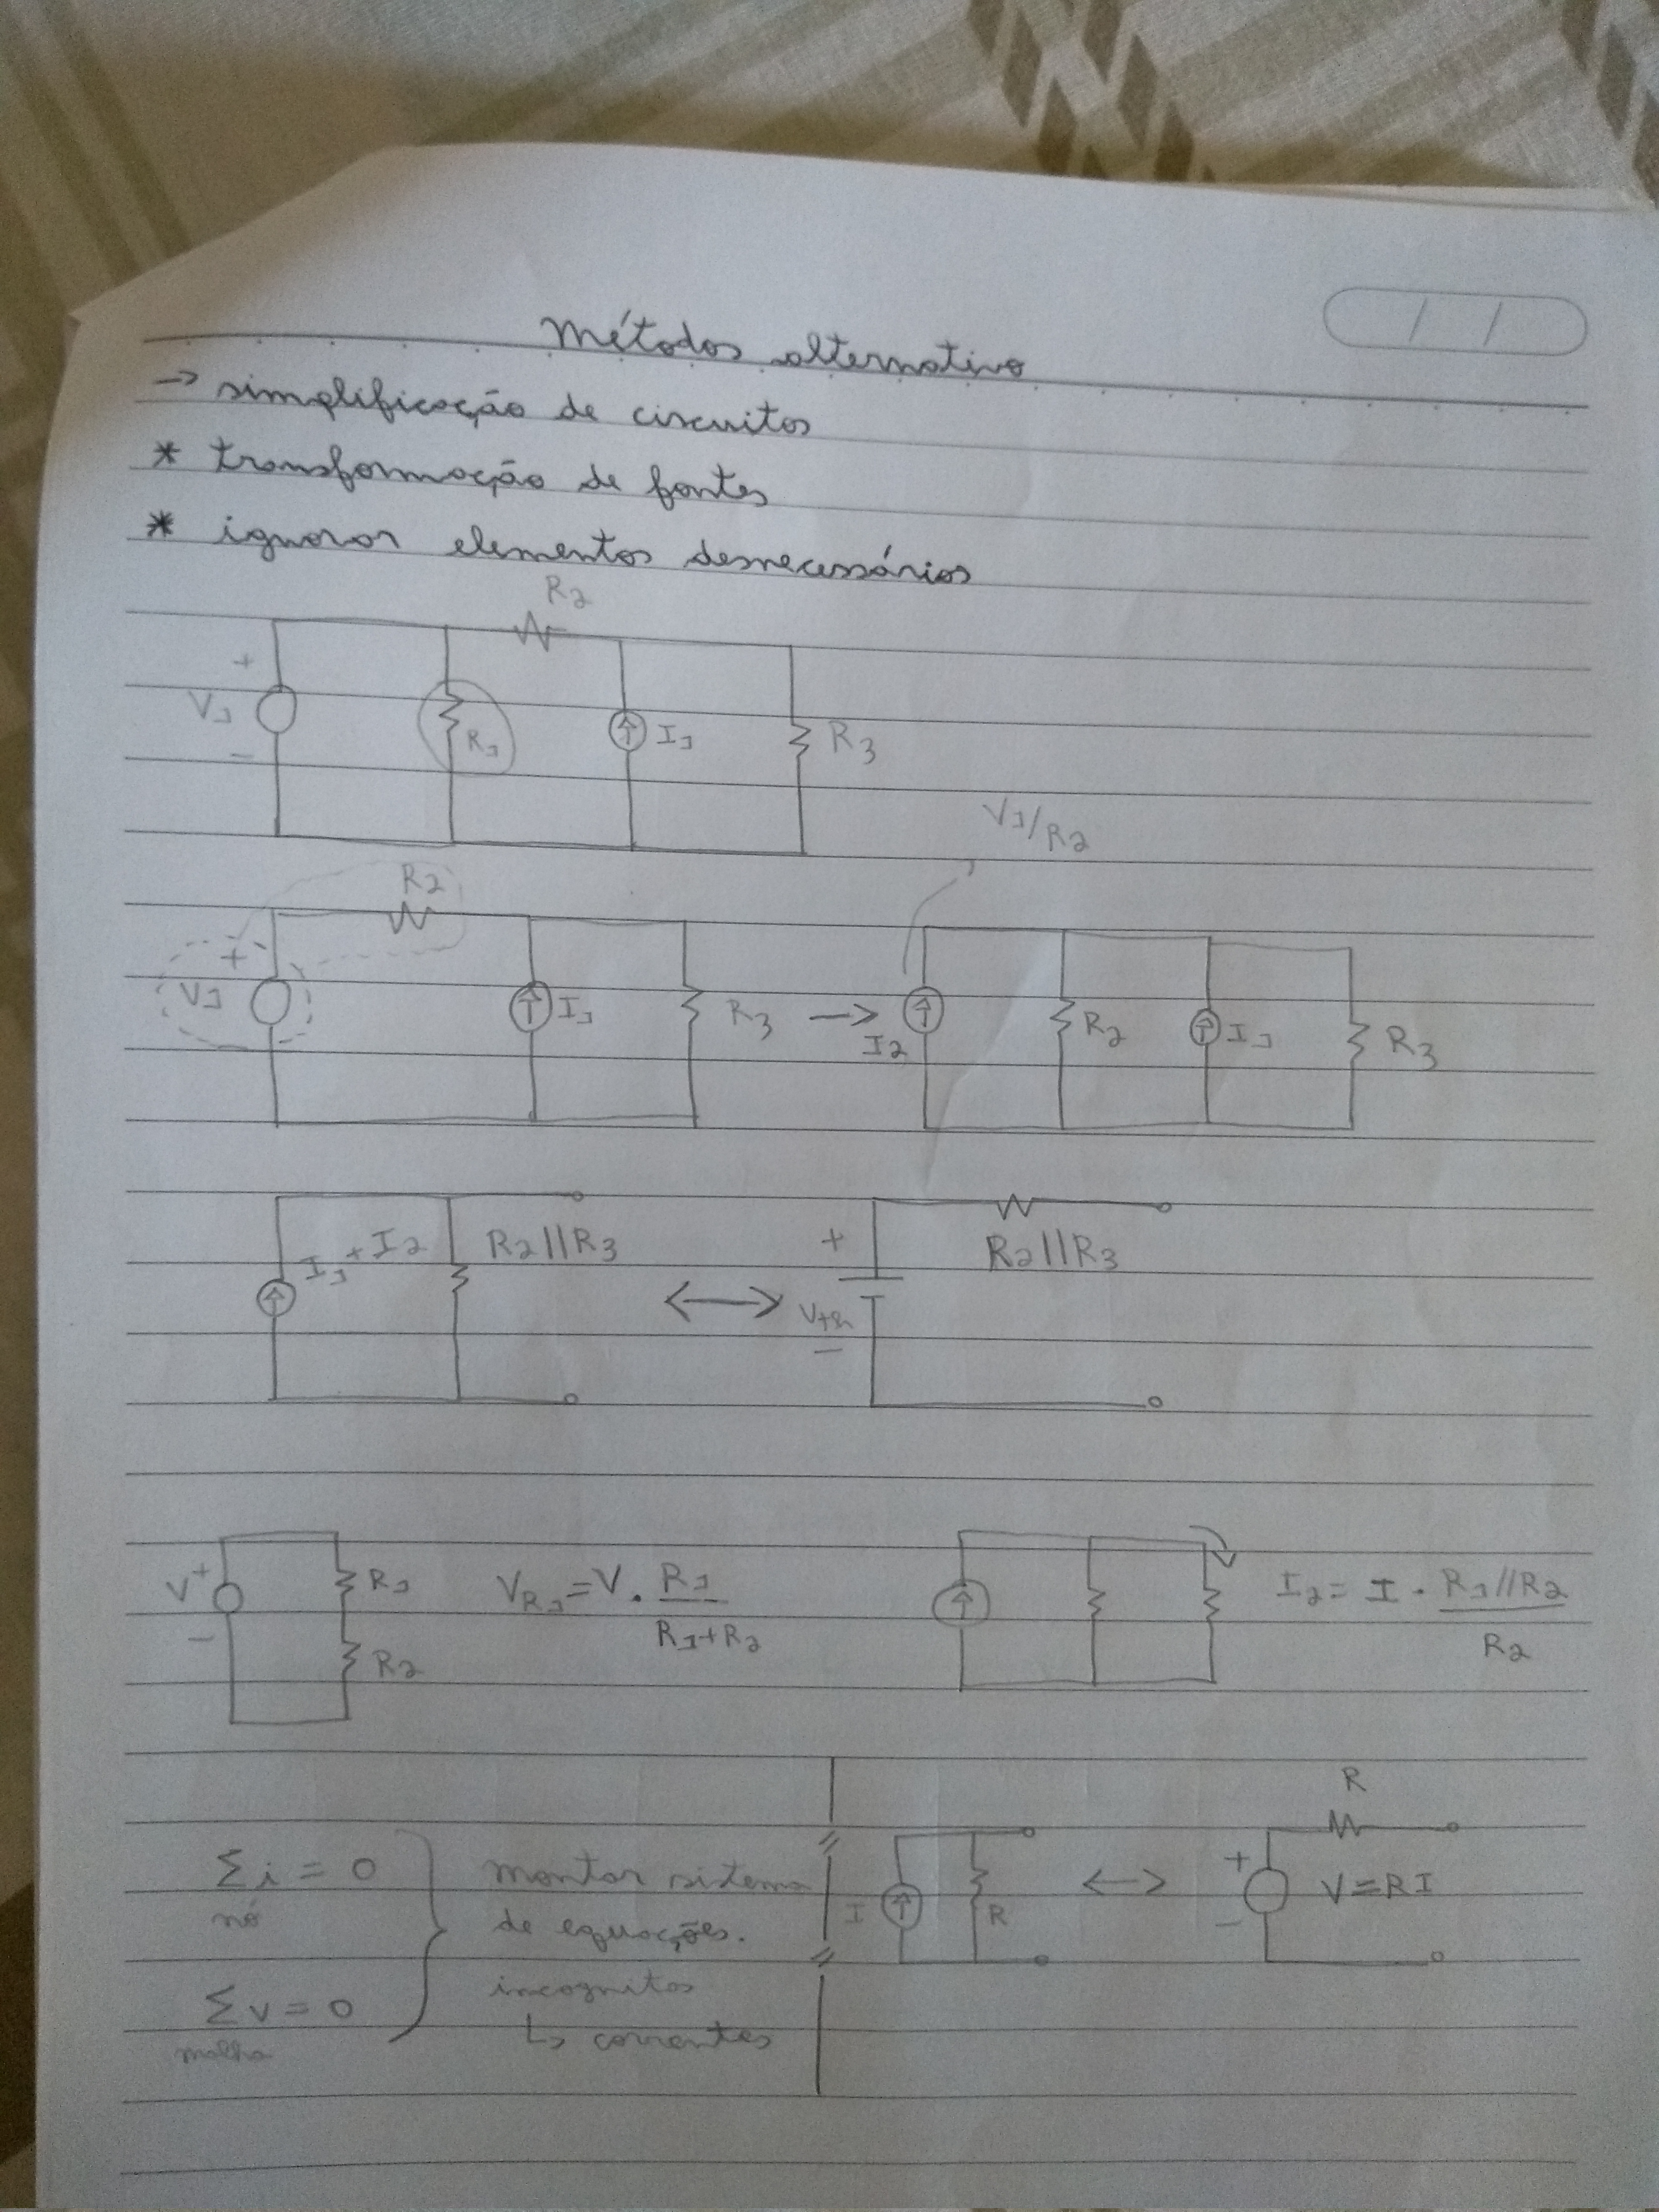 Métodos alternativo
/ /
→ simplificação de circuitos
* transformação de fontes
* ignorar elementos desnecessários
R2
+
V1
R1
I1
R3
-
V1/R2
R2
+
V1
I1
R3
→
I2
R2
I1
R3
I1+I2
R2||R3
↔
+
Vth
-
R2||R3
V
+
-
R1
R2
VR1=V. R1
R1+R2
I2= I . R1//R2
R2
Σi = 0
nó
Σv=0
malha
montar sistema
de equações.
incognitas
↳ correntes
I
R
↔
R
+
-
V=RI